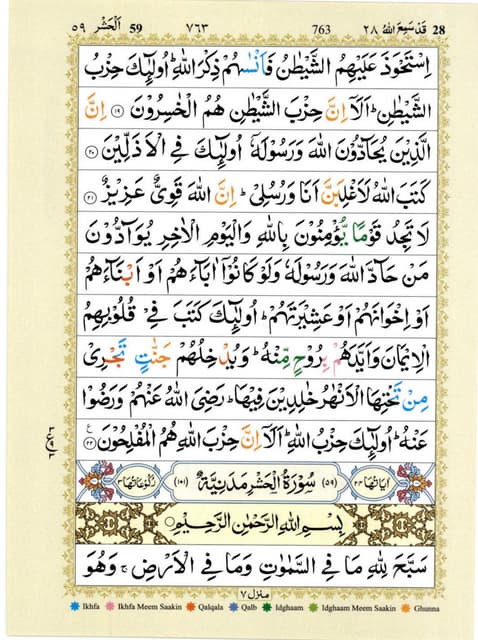 ٢٨ قَدْ سَمِعَ اللّٰهُ 28 763 ٧٦٣ 59 اَلْحَشْر ٥٩
اِسْتَحْوَذَ عَلَيْهِمُ الشَّيْطٰنُ فَاَنْسٰىهُمْ ذِكْرَ اللّٰهِ ؕ اُولٰٓئِكَ حِزْبُ
الشَّيْطٰنِ ؕ اَلَاۤ اِنَّ حِزْبَ الشَّيْطٰنِ هُمُ الْخٰسِرُوْنَ ﴿۱۹﴾ اِنَّ
الَّذِيْنَ يُحَآدُّوْنَ اللّٰهَ وَرَسُوْلَهٗۤ اُولٰٓئِكَ فِى الْاَذَلِّيْنَ ﴿۲۰﴾
كَتَبَ اللّٰهُ لَاَغْلِبَنَّ اَنَا وَرُسُلِىْ ؕ اِنَّ اللّٰهَ قَوِىٌّ عَزِيْزٌ ﴿۲۱﴾
لَا تَجِدُ قَوْمًا يُّؤْمِنُوْنَ بِاللّٰهِ وَالْيَوْمِ الْاٰخِرِ يُوَآدُّوْنَ
مَنْ حَآدَّ اللّٰهَ وَرَسُوْلَهٗ وَلَوْ كَانُوْۤا اٰبَآءَهُمْ اَوْ اَبْنَآءَهُمْ
اَوْ اِخْوَانَهُمْ اَوْ عَشِيْرَتَهُمْ ؕ اُولٰٓئِكَ كَتَبَ فِىْ قُلُوْبِهِمُ
الْاِيْمَانَ وَاَيَّدَهُمْ بِرُوْحٍ مِّنْهُ ؕ وَيُدْخِلُهُمْ جَنّٰتٍ تَجْرِىْ
مِنْ تَحْتِهَا الْاَنْهٰرُ خٰلِدِيْنَ فِيْهَا ؕ رَضِىَ اللّٰهُ عَنْهُمْ وَرَضُوْا
عَنْهُ ؕ اُولٰٓئِكَ حِزْبُ اللّٰهِ ؕ اَلَاۤ اِنَّ حِزْبَ اللّٰهِ هُمُ الْمُفْلِحُوْنَ ﴿۲۲﴾
اٰيَاتُهَا ٢٤ (٥٩) سُوْرَةُ الْحَشْرِ مَدَنِيَّةٌ (١٠١) رُكُوْعَاتُهَا ٣
بِسْمِ اللّٰهِ الرَّحْمٰنِ الرَّحِيْمِ
سَبَّحَ لِلّٰهِ مَا فِى السَّمٰوٰتِ وَمَا فِى الْاَرْضِ ۚ وَهُوَ
منزل ٧
Ikhfa Ikhfa Meem Saakin Qalqala Qalb Idghaam Idghaam Meem Saakin Ghunna